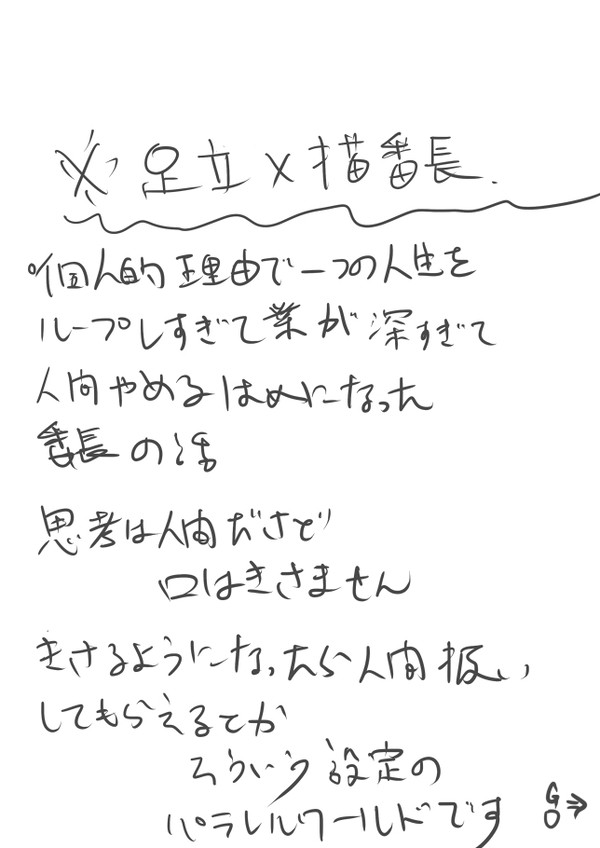 ※足立×描番長.
・個人的理由で一つの人生を
ループしすぎて業が深すぎて
人間やめるはめになった
番長の話
思考は人間だけど
口はきけません
きけるようになったら人間扱い
してもらえるとか
そういう設定の
パラレルワールドです
GO⇒